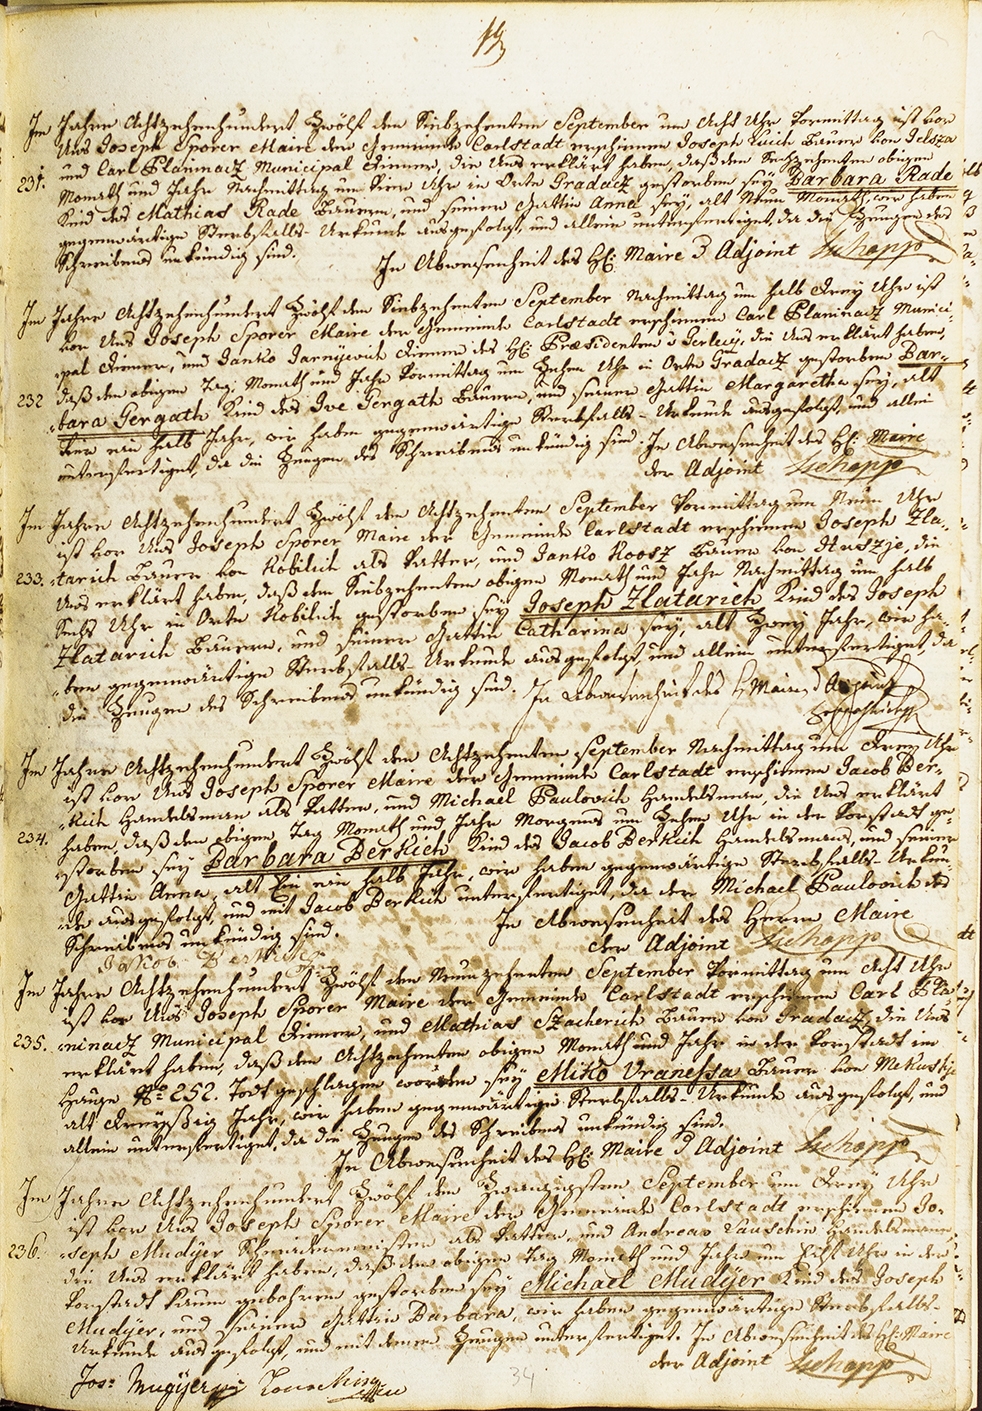 19
Im Jahre Achtzehenhundert Zwölf den Siebzehenten September um Acht Uhr Vormittag ist vor
Uns Joseph Sporer Maire der Gemeinde Carlstadt erschienen Joseph Bauer von Jelsza
und Carl Planinacz Municipal Diener, die Uns erklärt haben, daß den Sechzehenten obigen
231. Monath und Jahr Nachmittag um Vier Uhr in Orte Gradacz gestorben sey Barbara Rade
Kind des Mathias Rade Bauern, und seiner Gattin Anna sey, alt Neun Monath, wir haben
gegenwärtige Sterbfalls-Urkunde ausgefolgt, und allein unterfertiget, da die Zeugen des
Schreibens unkündig sind.
In Abwesenheit des H: Maire d Adjoint
Im Jahre Achtzehenhundert Zwölf den Siebzehenten September Nachmittag um halb Drey Uhr ist
vor Uns Joseph Sporer Maire der Gemeinde Carlstadt erschienen Carl Planinacz Munici-
-pal Diener, und Janko Diener des H: Præsidenten v die Uns erklärt haben,
232 daß den obigen Tag, Monath und Jahr Vormittag um Zehen Uhr in Orte Gradacz gestorben Bar-
-bara Gergath Kind des Ive Gergath Bauern, und seiner Gattin Margaretha sey, alt
vier ein halb Jahr, wir haben gegenwärtige Sterbfalls-Urkunde ausgefolgt, und allein
unterfertiget, da die Zeugen des Schreibens unkündig sind. In Abwesenheit des H: Maire
der Adjoint
Im Jahre Achtzehenhundert Zwölf den Achtzehenten September Vormittag um Neun Uhr
ist vor Uns Joseph Sporer Maire der Gemeinde Carlstadt erschienen Joseph Zla-
233. -tarich Bauer von Kobilich als Vatter, und Janko Roosz Bauer von Huszje, die
Uns erklärt haben, daß den Siebzehenten obigen Monath und Jahr Nachmittag um halb
Sechs Uhr in Orte Kobilich gestorben sey Joseph Zlatarich Kind des Joseph
Zlatarich Bauern, und seiner Gattin Catharina sey, alt Zwey Jahr, wir ha-
-ben gegenwärtige Sterbfalls-Urkunde ausgefolgt, und allein unterfertiget, da
die Zeugen des Schreibens unkündig sind. In Abwesenheit des H Maire d Adjoint
Im Jahre Achtzehenhundert Zwölf den Achtzehenten September Nachmittag um Drey Uhr
ist vor Uns Joseph Sporer Maire der Gemeinde Carlstadt erschienen Jacob Ber-
-kich Handelsman als Vatter, und Michael Paulovich Handelsman, die Uns erklärt
234. haben, daß den obigen Tag Monath und Jahr Morgens um Zehen Uhr in der Vorstadt ge-
-storben sey Barbara Berkich Kind des Jacob Berkich Handelsmans, und seiner
Gattin Anna, alt Ein ein halb Jahr, wir haben gegenwärtige Sterbfalls-Urkun-
-de ausgefolgt, und mit Jacob Berkich unterfertiget, da der Michael Paulovich des
Schreibens unkündig sind.
In Abwesenheit des Herrn Maire
der Adjoint
Im Jahre Achtzehenhundert Zwölf den Neunzehenten September Vormittag um Acht Uhr
ist vor Uns Joseph Sporer Maire der Gemeinde Carlstadt erschienen Carl Pla-
235. -ninacz Municipal Diener, und Mathias Szacherich Bauer von Gradacz, die Uns
erklärt haben, daß den Achtzehenten obigen Monath und Jahr in der Vorstadt im
Hause No 252. Todt geschlagen worden sey Miko Vranessa Bauer von Mekuskje
alt Dreyßig Jahr, wir haben gegenwärtige Sterbfalls-Urkunde ausgefolgt, und
allein unterfertiget, da die Zeugen des Schreibens unkündig sind.
In Abwesenheit des H: Maire d Adjoint
Im Jahre Achtzehenhundert Zwölf den Zwanzigsten September um Drey Uhr
ist vor Uns Joseph Sporer Maire der Gemeinde Carlstadt erschienen Jo-
236. -seph Mudyer Schneidermeister als Vatter, und Andreas Lauschin Handelsmann
die Uns erklärt haben, daß den obigen Tag Monath und Jahr um Uhr in der
Vorstadt kaum gebohren gestorben sey Michael Mudyer Kind des Joseph
Mudyer, und seiner Gattin Barbara, wir haben gegenwärtige Sterbfalls-
Urkunde ausgefolgt, und mit denen Zeugen unterfertiget. In Abwesenheit des H: Maire
der Adjoint
Jos: Mudyer
34